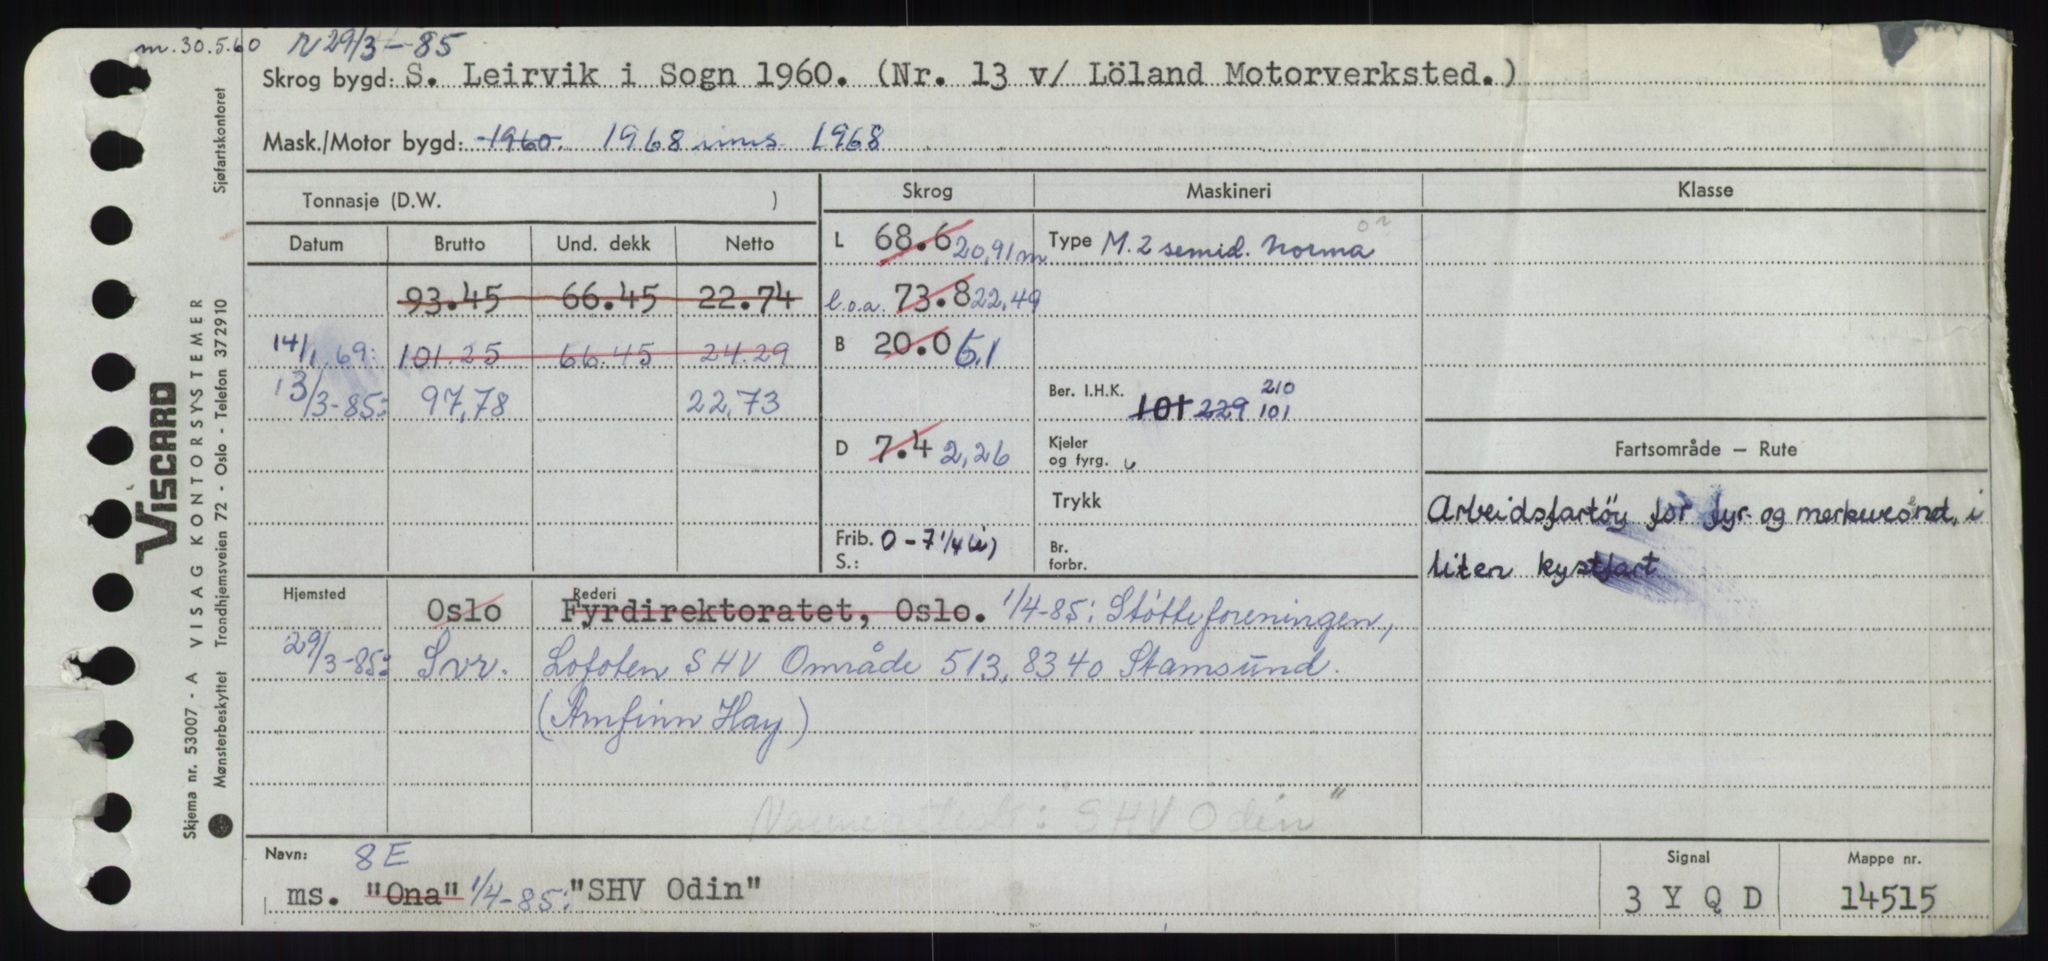 m. 30.5.60 R 29/3-85
Skrog bygd: S. Leirvik i Sogn 1960. (Nr. 13 v/ Löland Motorverksted.)
Mask./Motor bygd: 1960. 1968 inns. 1968
Tonnasje (D.W. )
Skrog Maskineri Klasse
Datum Brutto Und. dekk Netto
L 68.6 20,91 m Type M. 2 semid. Norma
93.45 66.45 22.74 l.o.a. 73.8 22,49
14/1 69: 101.25 66.45 24.29 B 20.0 6,1
13/3-85: 97,78 22,73 Ber. I.H.K. 101 229 210
101
D 7.4 2,26 Kjeler
og fyrg.
Fartsområde — Rute
Trykk
Arbeidsfartöy for fyr- og merkevesnet, i
Frib. 0 - 7 1/4 (i)
S.:
Br.
forbr.
liten kystfart
Hjemsted Rederi
Oslo Fyrdirektoratet, Oslo. 1/4-85: Støtteforeningen,
29/3-85: Svr. Lofoten SHV Område 513, 8340 Stamsund.
(Arnfinn Hay)
: "SHV Odin"
Navn: 8E Signal Mappe nr.
ms. "Ona" 1/4-85: "SHV Odin" 3 Y Q D 14515
VISCARD
Skjema nr. 53007 - A VISAG KONTORSYSTEMER
Mønsterbeskyttet Trondhjemsveien 72 - Oslo - Telefon 372910 Sjøfartskontoret